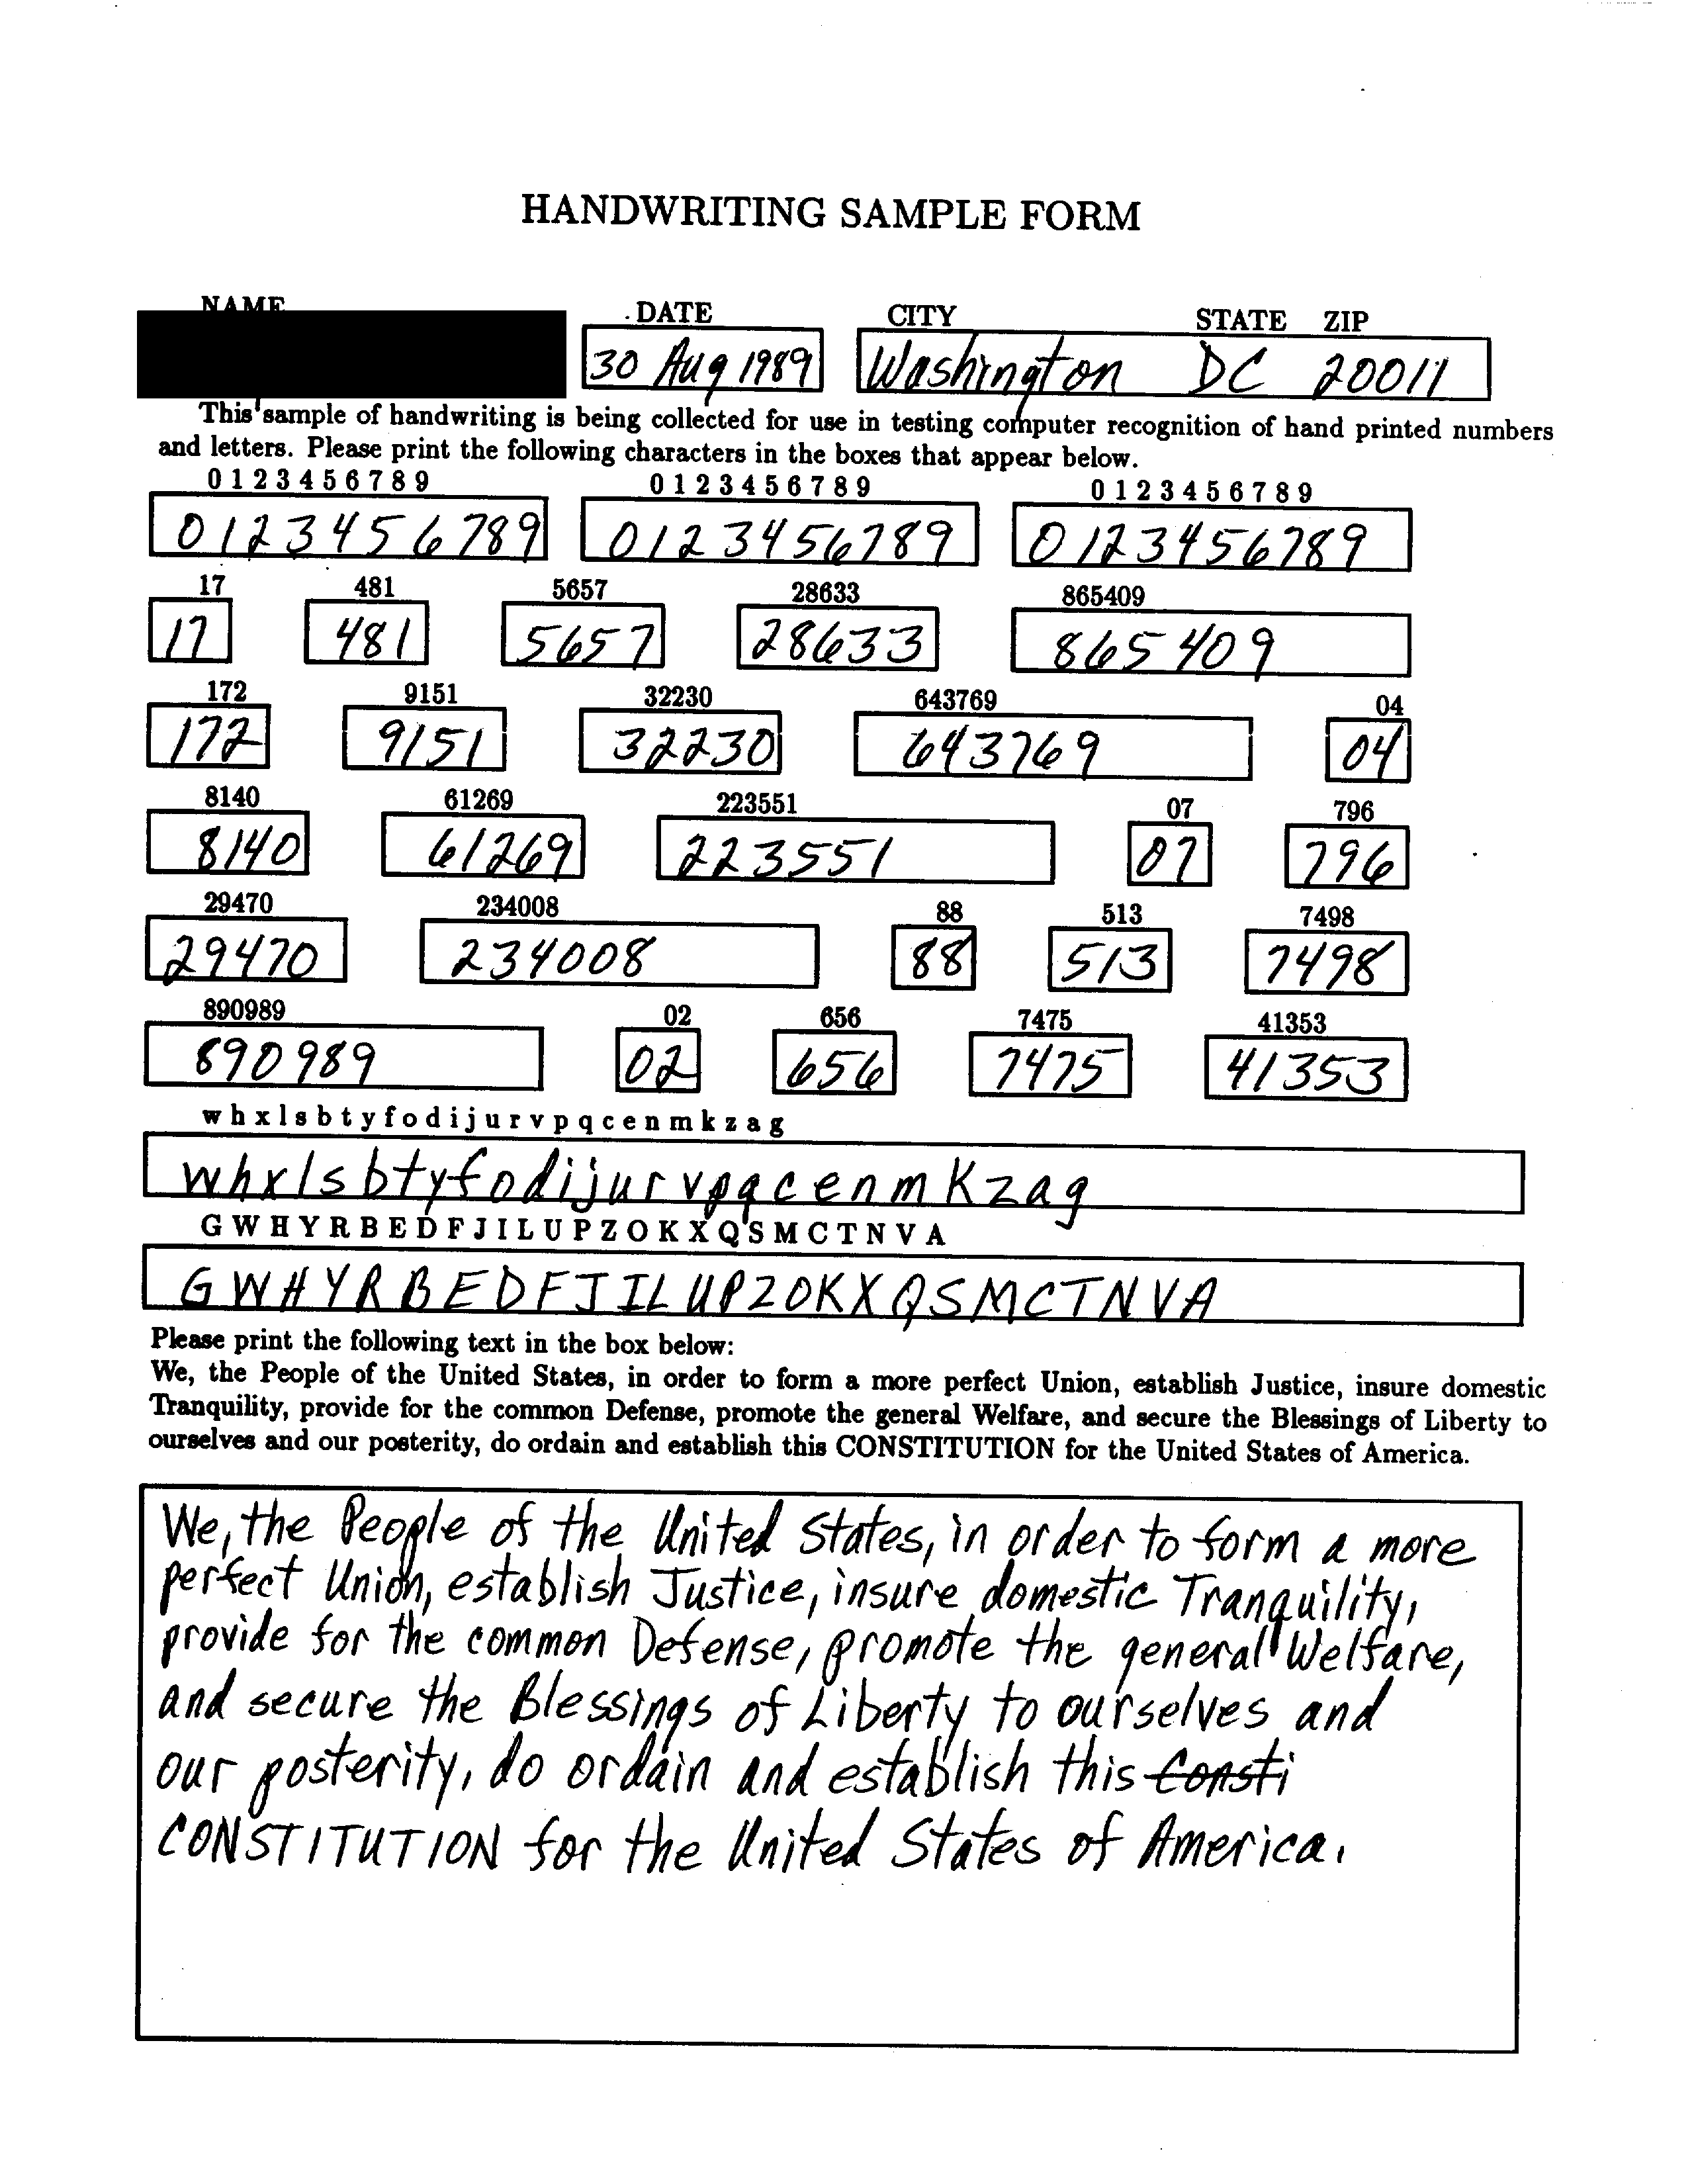 HANDWRITING SAMPLE FORM
NAME DATE CITY STATE ZIP
30 Aug 1989 Washington DC 20011
This sample of handwriting is being collected for use in testing computer recognition of hand printed numbers
and letters. Please print the following characters in the boxes that appear below.
0 1 2 3 4 5 6 7 8 9 0 1 2 3 4 5 6 7 8 9 0 1 2 3 4 5 6 7 8 9
0123456789 0123456789 0123456789
17 481 5657 28633 865409
17 481 5657 28633 865409
172 9151 32230 643769 04
172 9151 32230 643769 04
8140 61269 223551 07 796
8140 61269 223551 07 796
29470 234008 88 513 7498
29470 234008 88 513 7498
890989 02 656 7475 41353
890989 02 656 7475 41353
w h x l s b t y f o d i j u r v p q c e n m k z a g
whxlsbtyfodijurvpqcenmKzag
G W H Y R B E D F J I L U P Z O K X Q S M C T N V A
GWHYRBEDFJILUPZOKXQSMCTNVA
Please print the following text in the box below:
We, the People of the United States, in order to form a more perfect Union, establish Justice, insure domestic
Tranquility, provide for the common Defense, promote the general Welfare, and secure the Blessings of Liberty to
ourselves and our posterity, do ordain and establish this CONSTITUTION for the United States of America.
We, the People of the United States, in order to form a more
perfect Union, establish Justice, insure domestic Tranquility,
provide for the common Defense, promote the general Welfare,
and secure the Blessings of Liberty to ourselves and
our posterity, do ordain and establish this Consti
CONSTITUTION for the United States of America.